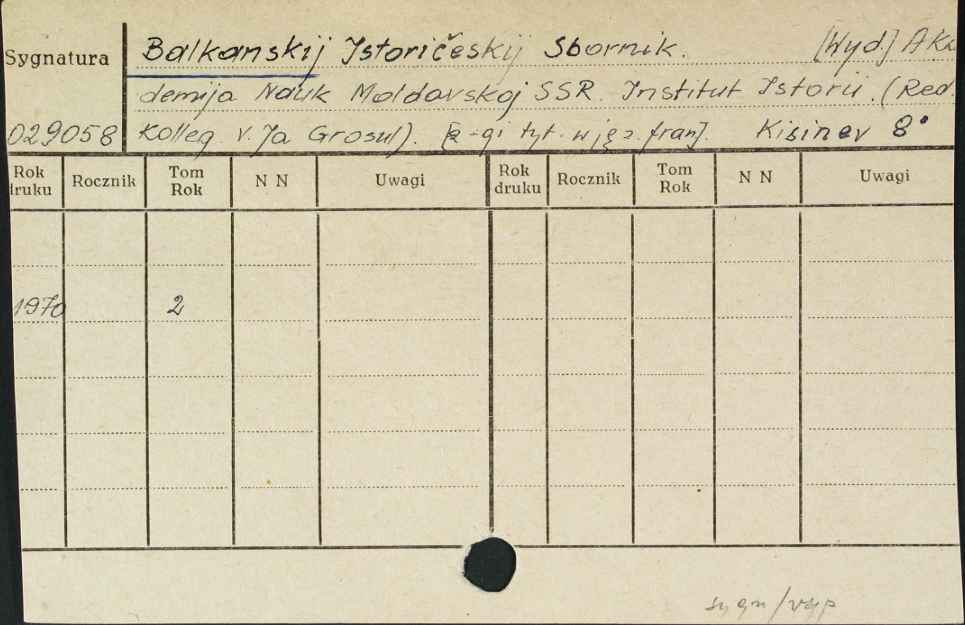 Sygnatura Balkanskij Istoričeskij Sbornik. [Wyd.] Aka
demija Nauk Moldavskoj SSR. Institut Istorii. (Red.
029058 Kolleg. V. Ja Grosul). [2-gi tyt. w jęz. fran]. Kišinev 8°
Rok druku Rocznik Tom Rok N N Uwagi Rok druku Rocznik Tom Rok N N Uwagi
1970 2
sygn/